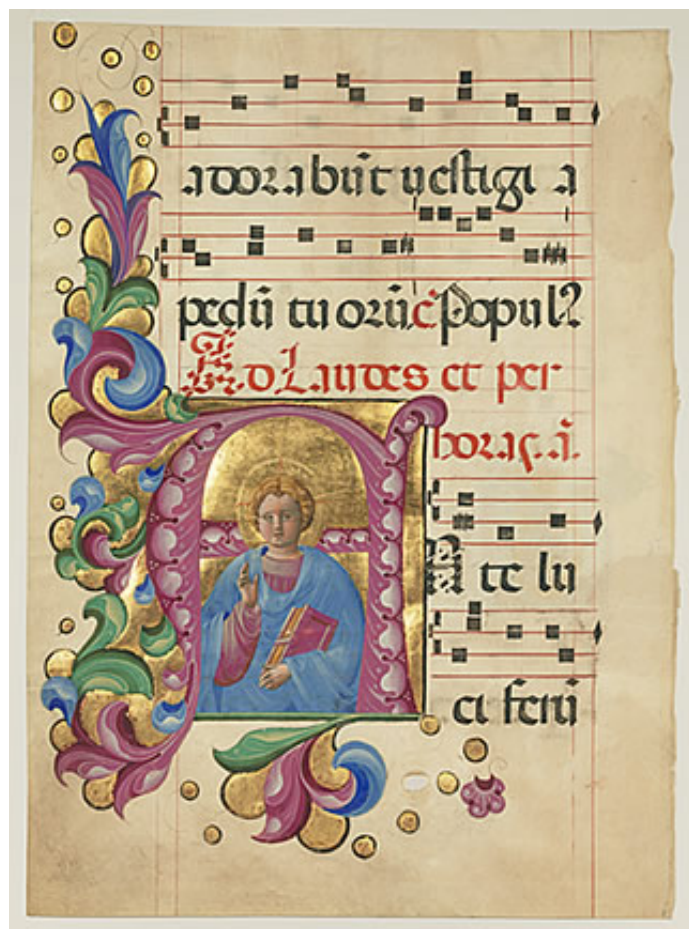 adorabūt uestigi a
pedū tu orū c̄ Popul
Ad Laudes et per
horas. ā.
AN te lu
ci ferū